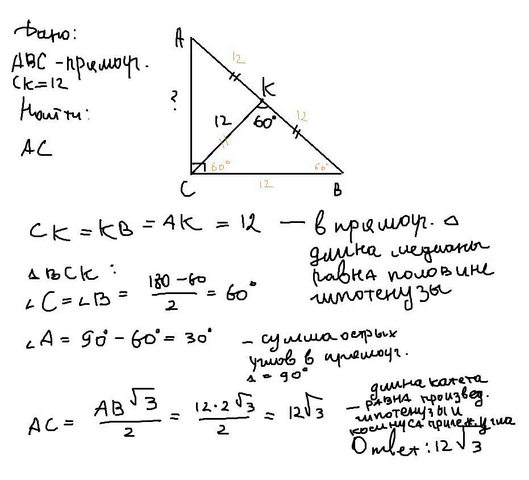 Дано:
ABC - прямоуг.
CK = 12
Найти:
AC
A
12
K
?
12
60°
12
60°
60°
C
12
B
CK = KB = AK = 12 — в прямоуг. △
длина медианы
равна половине
гипотенузы
△ BCK:
∠C = ∠B = (180 - 60)/2 = 60°
∠A = 90° - 60° = 30° - сумма острых
углов в прямоуг.
△ = 90°
AC = AB√3/2 = 12·2√3/2 = 12√3
— длина катета
равна произвед.
гипотенузы и
косинуса прилеж. угла
Ответ: 12√3